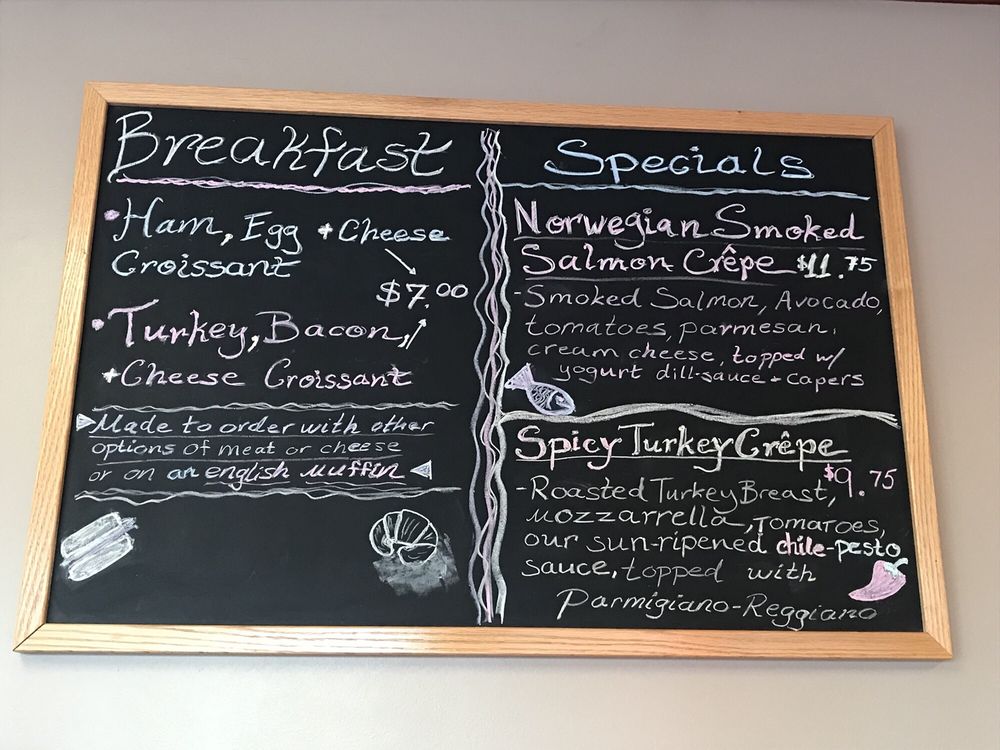 Breakfast
• Ham, Egg + Cheese
Croissant
$7.00
• Turkey, Bacon,
+Cheese Croissant
Made to order with other
options of meat or cheese
or on an english muffin
Specials
Norwegian Smoked
Salmon Crêpe $11.75
-Smoked Salmon, Avocado,
tomatoes, parmesan,
cream cheese, topped w/
yogurt dill-sauce + capers
Spicy Turkey Crêpe
$9.75
-Roasted Turkey Breast,
mozzarrella, Tomatoes,
our sun-ripened chile-pesto
sauce, topped with
Parmigiano-Reggiano